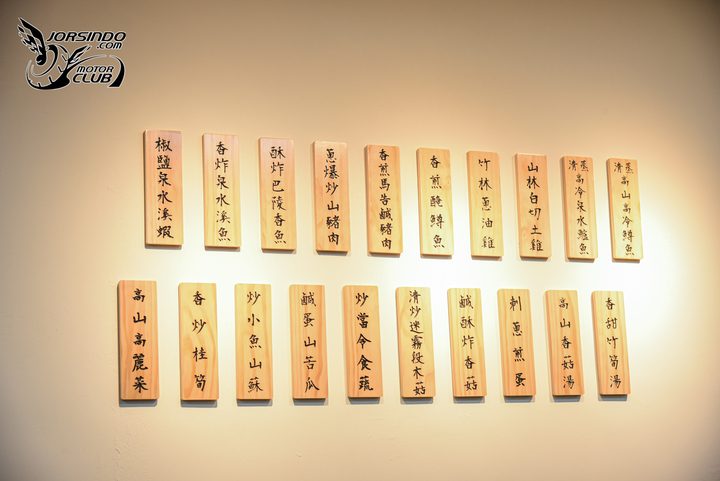 JORSINDO
.com
MOTOR
CLUB
椒鹽泉水溪蝦
香炸泉水溪魚
酥炸巴陵香魚
蔥爆炒山豬肉
香煎馬告鹹豬肉
香煎醃鱒魚
竹林蔥油雞
山林白切土雞
清蒸高冷泉水鱸魚
清蒸高山高冷鱒魚
高山高麗菜
香炒桂筍
炒小魚山蘇
鹹蛋山苦瓜
炒當令食蔬
清炒迷霧段木菇
鹹酥炸香菇
刺蔥煎蛋
高山香菇湯
香甜竹筍湯